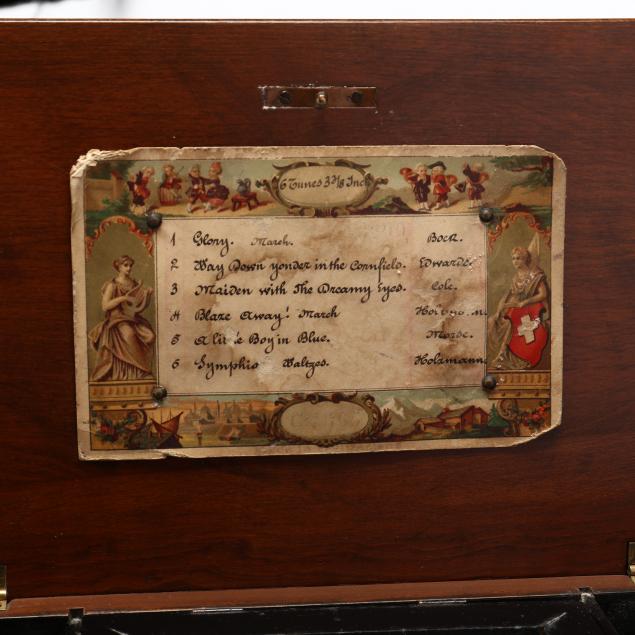 6 Tunes 3 3/8 Inch
1 Glory. March. Bock.
2 Way Down yonder in the Cornfield. Edwards.
3 Maiden with The Dreamy Eyes. Cole.
4 Blaze Away! March
5 Boy in Blue. Morse.
6 Symphia Waltzes. Holzmann.